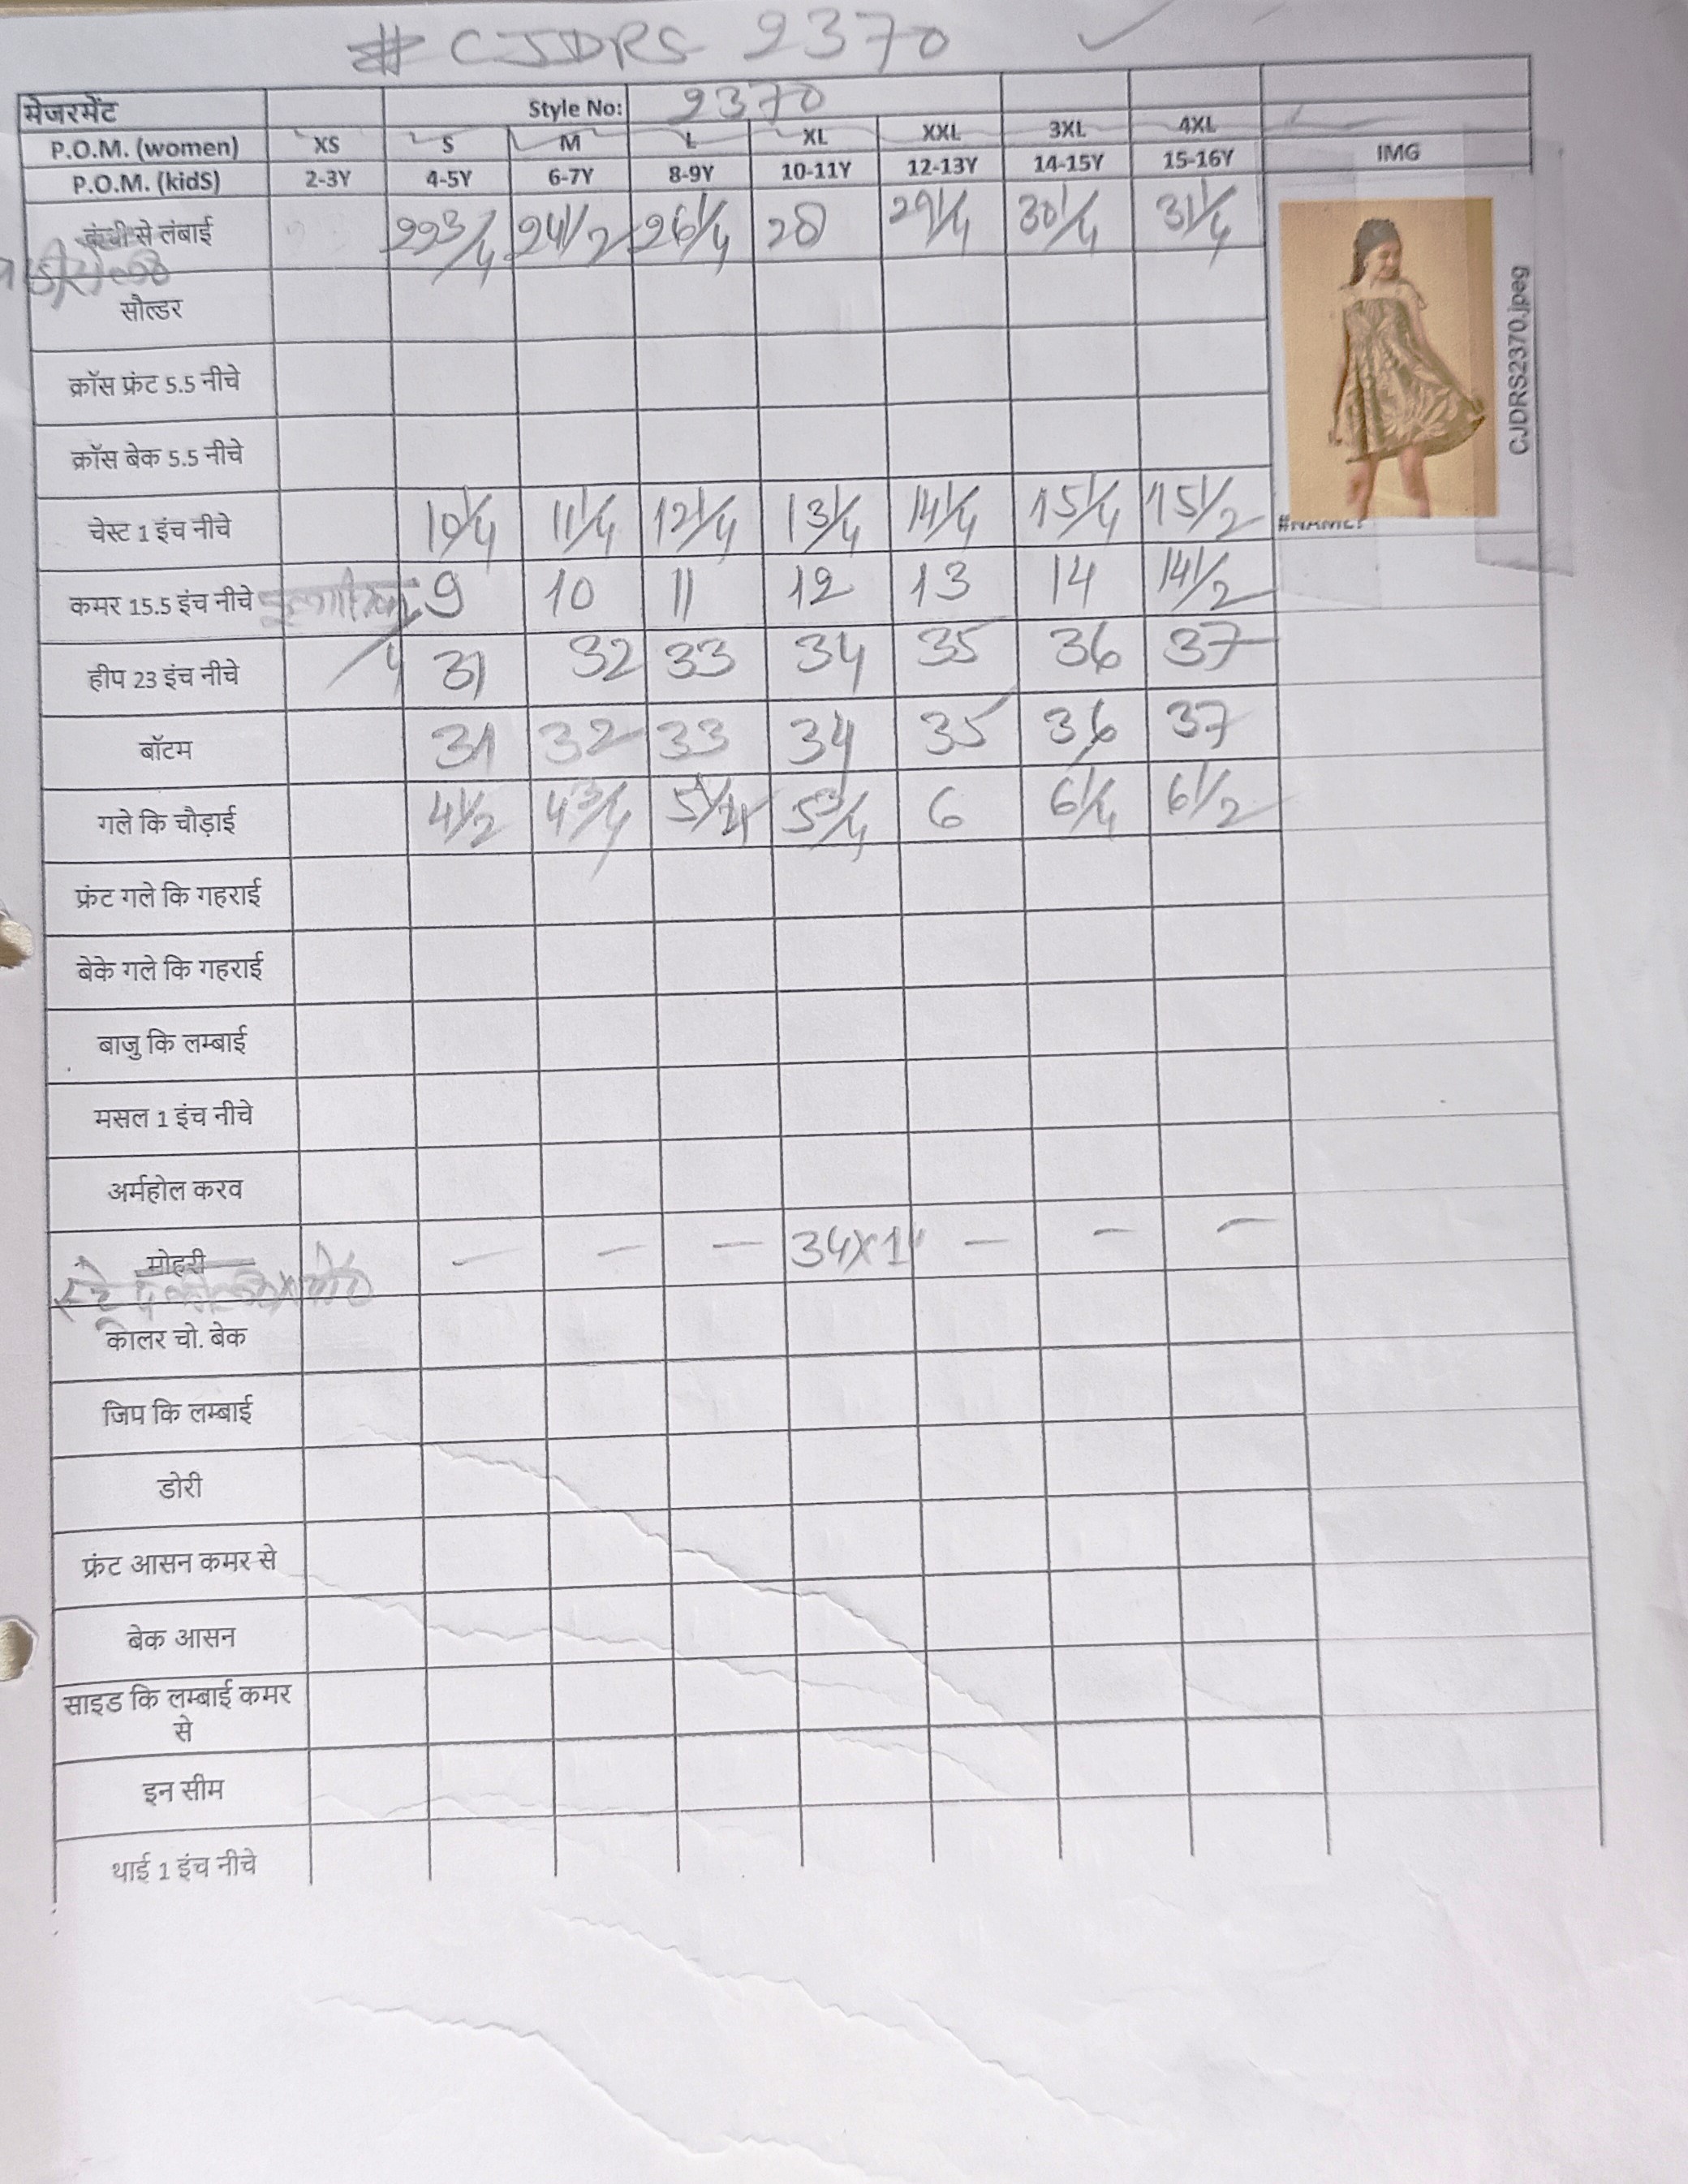 # CJDRS 2370
मेजरमेंट Style No: 2370
P.O.M. (women) XS S M L XL XXL 3XL 4XL IMG
P.O.M. (kidS) 2-3Y 4-5Y 6-7Y 8-9Y 10-11Y 12-13Y 14-15Y 15-16Y
से लंबाई 22 3/4 24 1/2 26 1/4 28 29 1/4 30 1/4 31 1/4
सौल्डर
CJDRS2370.jpeg
क्रॉस फ्रंट 5.5 नीचे
क्रॉस बेक 5.5 नीचे
चेस्ट 1 इंच नीचे 10 1/4 11 1/4 12 1/4 13 1/4 14 1/4 15 1/4 15 1/2 #NAME?
कमर 15.5 इंच नीचे 9 10 11 12 13 14 14 1/2
हीप 23 इंच नीचे 31 32 33 34 35 36 37
बॉटम 31 32 33 34 35 36 37
गले कि चौड़ाई 4 1/2 4 3/4 5 3/4 6 6 1/4 6 1/2
फ्रंट गले कि गहराई
बेके गले कि गहराई
बाजु कि लम्बाई
मसल 1 इंच नीचे
अर्महोल करव
मोहरी — — — — — —
कालर चो. बेक
जिप कि लम्बाई
डोरी
फ्रंट आसन कमर से
बेक आसन
साइड कि लम्बाई कमर
से
इन सीम
थाई 1 इंच नीचे